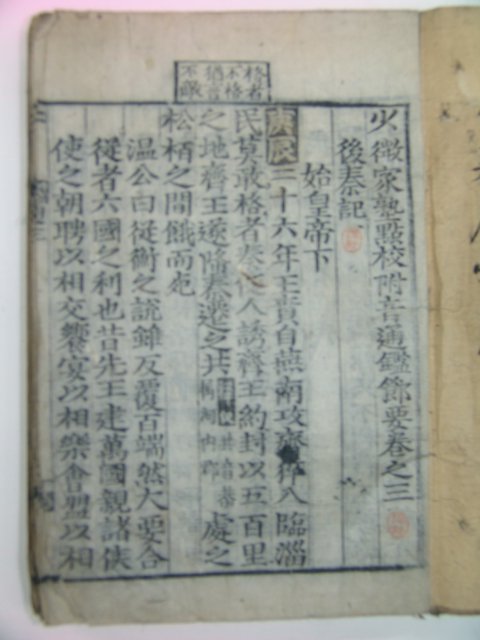 格者
不格
猶言
不敵
少微家塾點校附音通鑑節要卷之三
後秦記
始皇帝下
庚辰二十六年王賁自燕南攻齊猝入臨淄
民莫敢格者秦使人誘齊王約封以五百里
之地齊王遂降秦遷之共處之
松柏之間餓而死
溫公曰從衡之說雖反覆百端然大要合
從者六國之利也昔先王建萬國親諸侯
使之朝聘以相交饗宴以相樂會盟以相